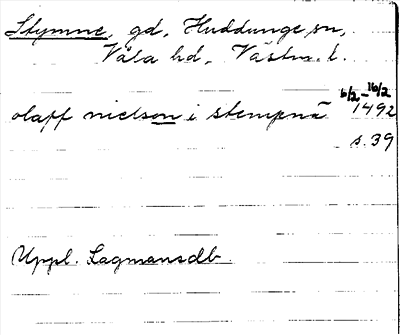 Stymne, gd, Huddunge sn,
Våla hd, Västm. l.
6/2-16/2
olaff nielson i stempnä 1492
s. 39
Uppl. Lagmansdb.